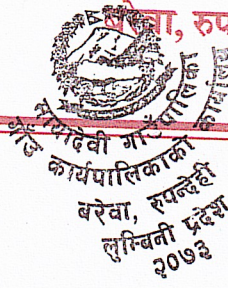 बरेवा, रुप
मायादेवी गाउँपालिका
गाउँ कार्यपालिकाको कार्यालय
बरेवा, रुपन्देही
लुम्बिनी प्रदेश
२०७३